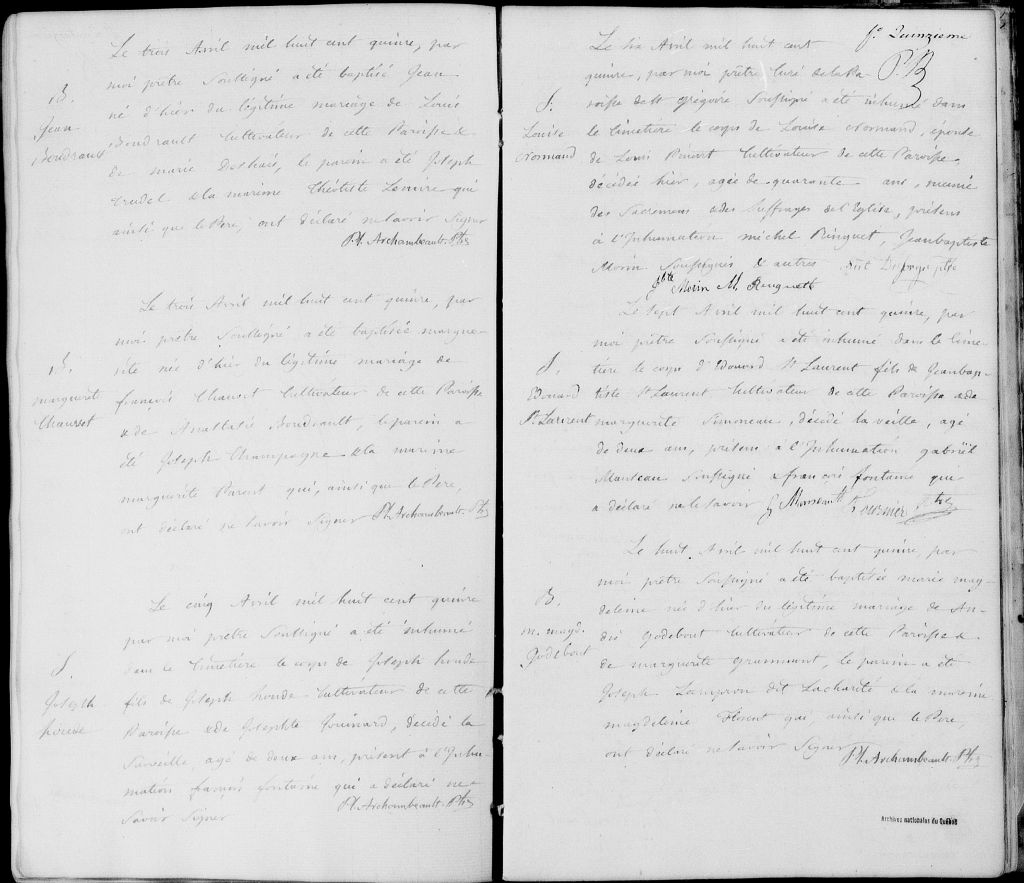 Le trois Avril mil huit cent quinze, par
moi prêtre Soussigné a été baptisé Jean
né d'hier du légitime mariage de Louis
B.
Jean
Boudrault
Boudrault Cultivateur de cette Paroisse &
de marie Deshaie, le parein a été Joseph
Trudel & la mareine Théotiste Lemire qui
ainsi que le Pere, ont déclaré ne savoir Signer
Ph. Archambeault. Ptre
Le trois Avril mil huit cent quinze, par
moi prêtre Soussigné a été baptisée margue-
rite née d'hier du légitime mariage de
B.
marguerite
Chausset
françois Chauset Cultivateur de cette Paroisse
& de Anastasie Boudrault, le parein a
été Joseph Champagne & la mareine
marguerite Parent qui, ainsi que le Pere,
ont déclaré ne savoir Signer Ph. Archambeault. Ptre
Le cinq Avril mil huit cent quinze
par moi prêtre Soussigné a été inhumé
dans le Cimetière le corps de Joseph houde
S.
Joseph
houde
fils de Joseph houde Cultivateur de cette
Paroisse & de Josephte Jouinard, décédé la
Surveille, agé de deux ans, présent à l'Inhu-
mation françois fontaine qui a déclaré ne
savoir Signer Ph. Archambeault. Ptre
fo. Quinzieme
P.B
Le six Avril mil huit cent
quinze, par moi prêtre Curé de la Pa
roisse de St grégoire Soussigné a été inhumé dans
S.
Louise
Normand
le Cimetière le corps de Louise Normand, épouse
de Louis Pinart Cultivateur de cette Paroisse,
décédée hier, agée de quarante ans, munie
des Sacremens & des Suffrages de l'Eglise, présens
à l'Inhumation michel Ringuet, Jeanbaptiste
Morin Soussignés & autres
Jbte Morin M. Reuguett
Le Sept Avril mil huit cent quinze, par
moi prêtre Soussigné a été inhumé dans le Cime-
S.
Edouard
St. Laurent
tière le corps d'Edouard St Laurent fils de Jeanbap-
tiste St Laurent Cultivateur de cette Paroisse & de
marguerite Simoneau, décédé la veille, agé
de deux ans, présens à l'Inhumation gabriël
Manseau Soussigné & françois fontaine qui
a déclaré ne le savoir G Manseault Fournier Ptre
Le huit Avril mil huit cent quinze, par
moi prêtre Soussigné a été baptisée marie mag-
B.
m. magd.
Godebout
deleine née d'hier du légitime mariage de An-
dré Godebout Cultivateur de cette Paroisse &
de marguerite grammont, le parein a été
Joseph Lampron dit Lacharité & la mareine
magdeleine Florent qui ainsi que le Pere,
ont déclaré ne savoir Signer
Ph. Archambeault. Ptre
Archives nationales du Québec